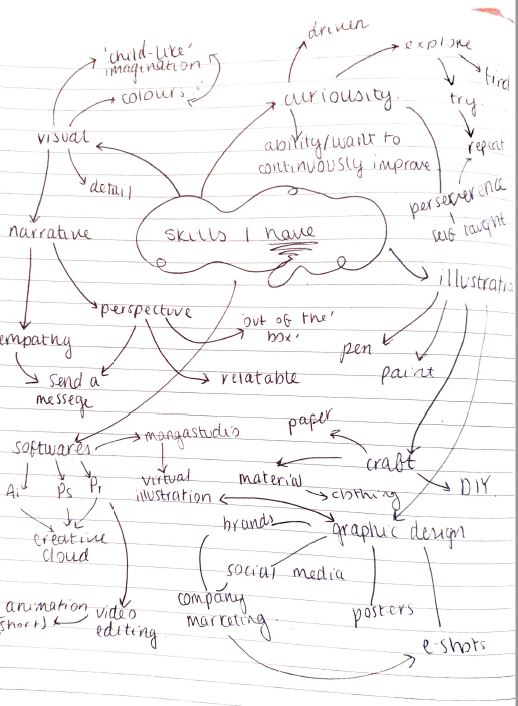 driven
'child-like'
imagination
explore
find
colours
curiousity
try
visual
ability/want to
continuously improve
repeat
detail
perserverence
self taught
narrative
skills I have
illustratio
perspective
'out of the'
box'
pen
empathy
send a
messege
relatable
paint
paper
softwares
mangastudio
craft
Ai
Ps
Pr
virtual
illustration
material
clothing
DIY
creative
cloud
brands
graphic design
social media
animation
(short)
video
editing
company
marketing
posters
e-shots